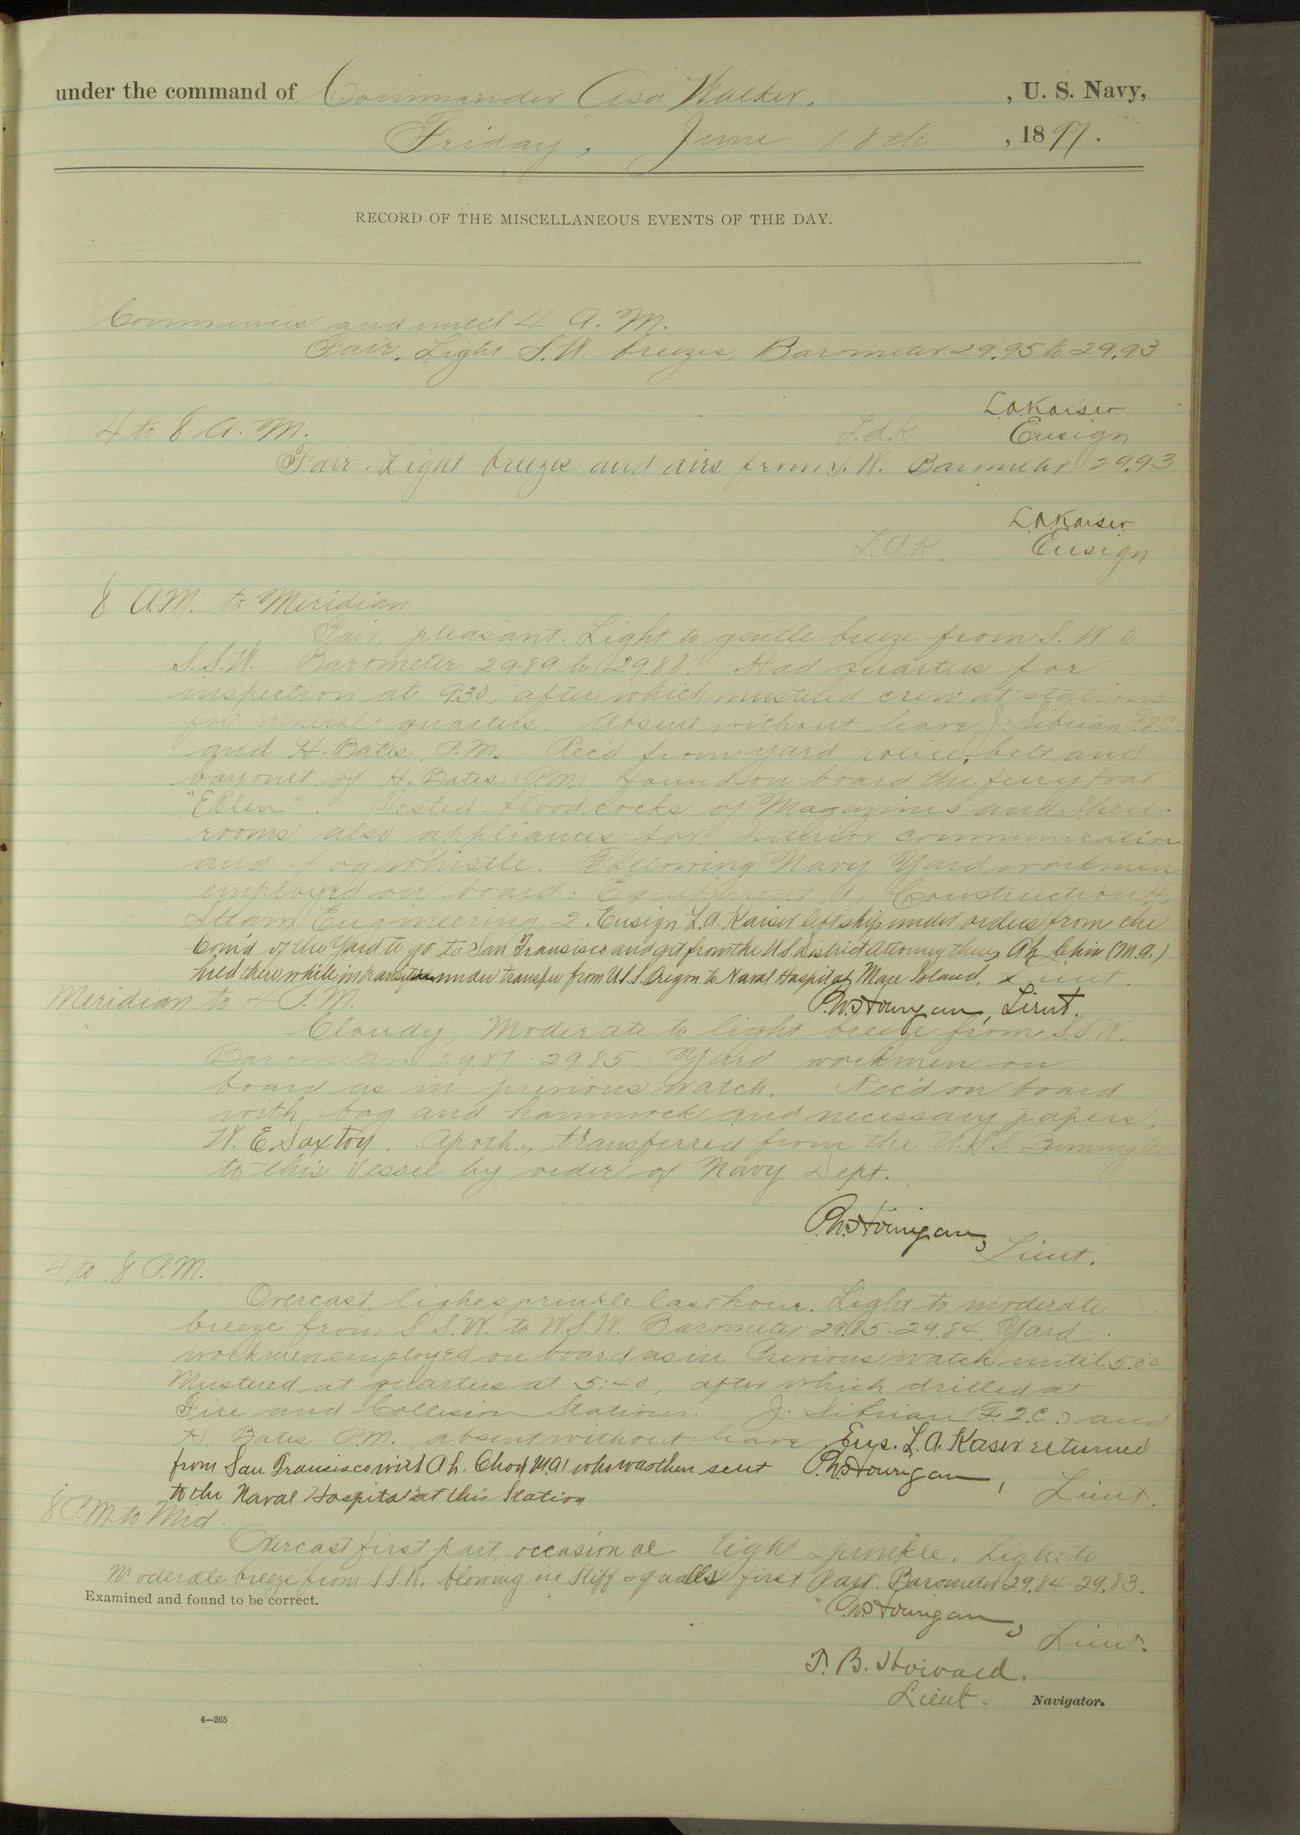 under the command of Commander Asa Walker. , U. S. Navy,
Friday, June 18th , 1897.
RECORD OF THE MISCELLANEOUS EVENTS OF THE DAY.
Commences and until 4 A. M.
Fair. Light S.W. breezes. Barometer 29.95 to 29.93
L.A. Kaiser
4 to 8 A. M. Ensign
Fair. Light breezes and airs from S.W. Barometer 29.93
L.A. Kaiser
Ensign
8 A.M. to Meridian
Fair, pleasant. Light to gentle breeze from S. W to
S.S.W. Barometer 29.89 to 29.88. Had quarters for
inspection at 9:30, after which mustered crew at stations
for general quarters. Absent without leave, J. Sibrian F.2.C.
and H. Bates, P.M. Rec'd from yard police, belt and
bayonet of H. Bates (P.M.) found on board the ferry boat
"Ellen". Tested flood cocks of Magazines and shell-
rooms also appliances for interior communication
and fog whistle. Following Navy Yard workmen
employed on board: Equipment 1, Construction 4,
Steam Engineering 2. Ensign L.A. Kaiser left ship under orders from the
Com'd't of the Yard to go to San Fransisco and get from the U S District Attorney there Ah (M.A.)
held there while in transit under transfer from U.S.S. Oregon to Naval Hospital at Mare Island.
Meridian to 4 P.M. P.W. Hourigan, Lieut.
Cloudy, Moderate to light breeze from S.S.W.
Barometer 29.87-29.85. Yard workmen on
board as in previous watch. Rec'd on board
with bag and hammock and necessary papers,
W. E. Saxton. Apoth., transferred from the U.S.S.
to this vessel by order of Navy Dept.
P.W. Hourigan,
Lieut.
4 to 8 P.M.
Overcast, light sprinkle last hour. Light to moderate
breeze from S.S.W. to W.S.W. Barometer 29.85-29.84. Yard
workmen employed on board as in Previous watch until 5:00
Mustered at quarters at 5:40, after which drilled at
Fire and Collision Stations. J. Sibrian (F.2.C.) and
H. Bates P.M., absent without leave. Ens. L. A. Kaiser returned
from San Fransisco with Ah. M.At who was then sent P.W. Hourigan,
to the Naval Hospital at this Station Lieut.
8 P.M. to Mid.
Overcast first part, occasional light sprinkle. Light to
Moderate breeze from S.S.W. blowing in stiff squalls first part. Barometer 29.84-29.83.
Examined and found to be correct.
P.W. Hourigan,
Lieut.
T. B. Howard.
Lieut. Navigator.
4—265